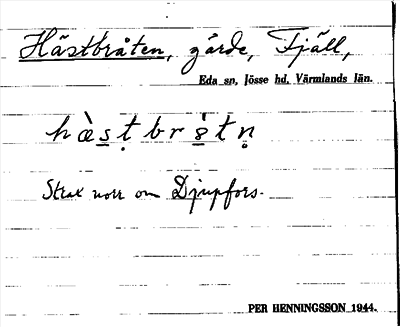 Hästbråten, gärde, Fjäll,
Eda sn, Jösse hd. Värmlands län.
Strax norr om Djupfors.
PER HENNINGSSON 1944.